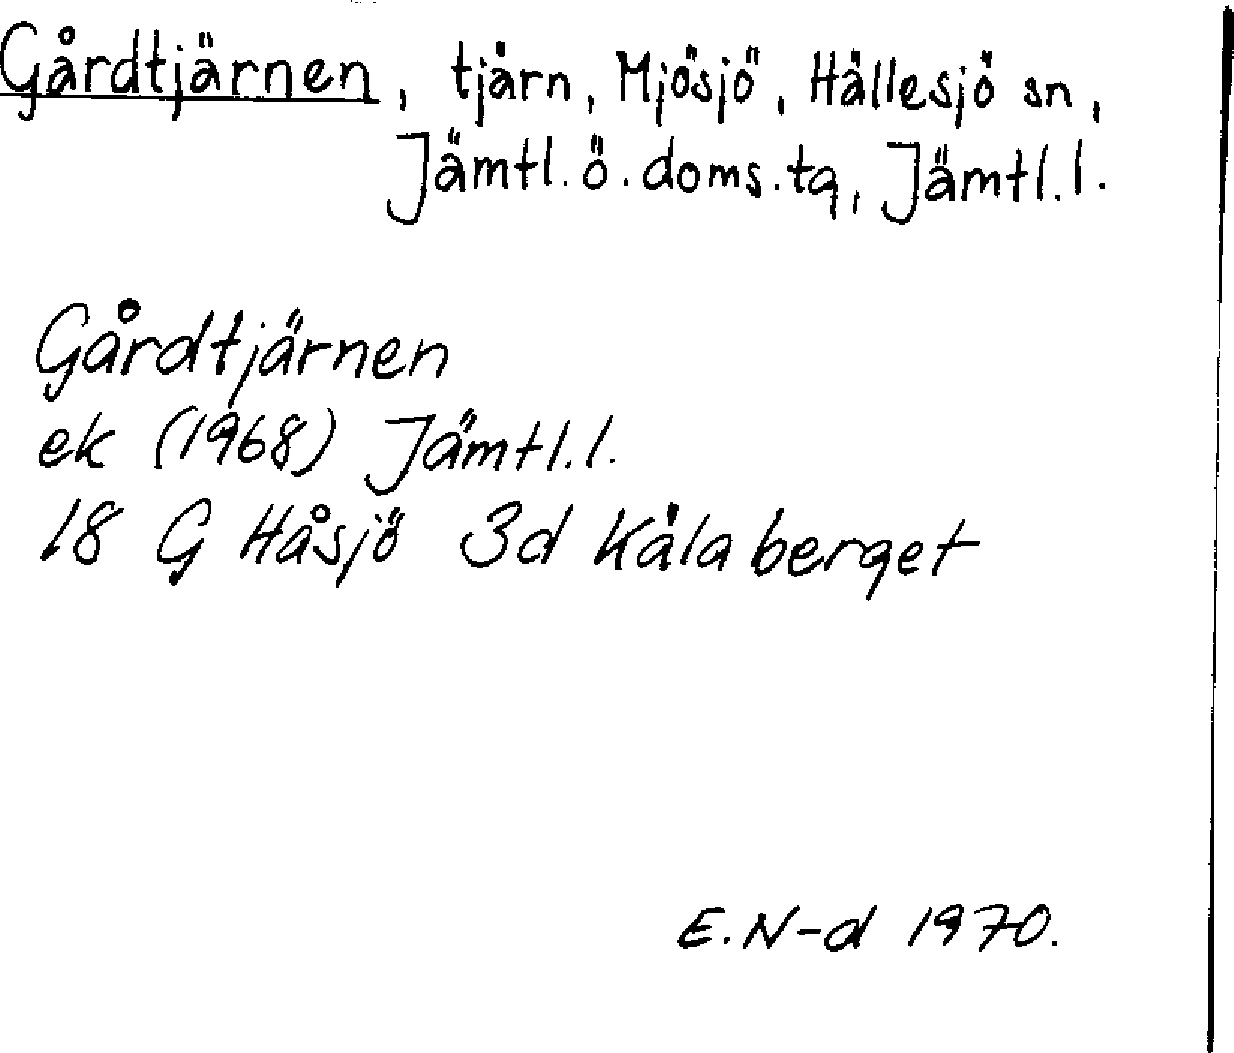 Gårdtjärnen, tjärn, Mjösjö, Hällesjö sn,
Jämtl. ö. doms. tg, Jämtl. l.
Gårdtjärnen
ek (1968) Jämtl. l.
18 G Håsjö 3d Kålaberget
E. N-d 1970.